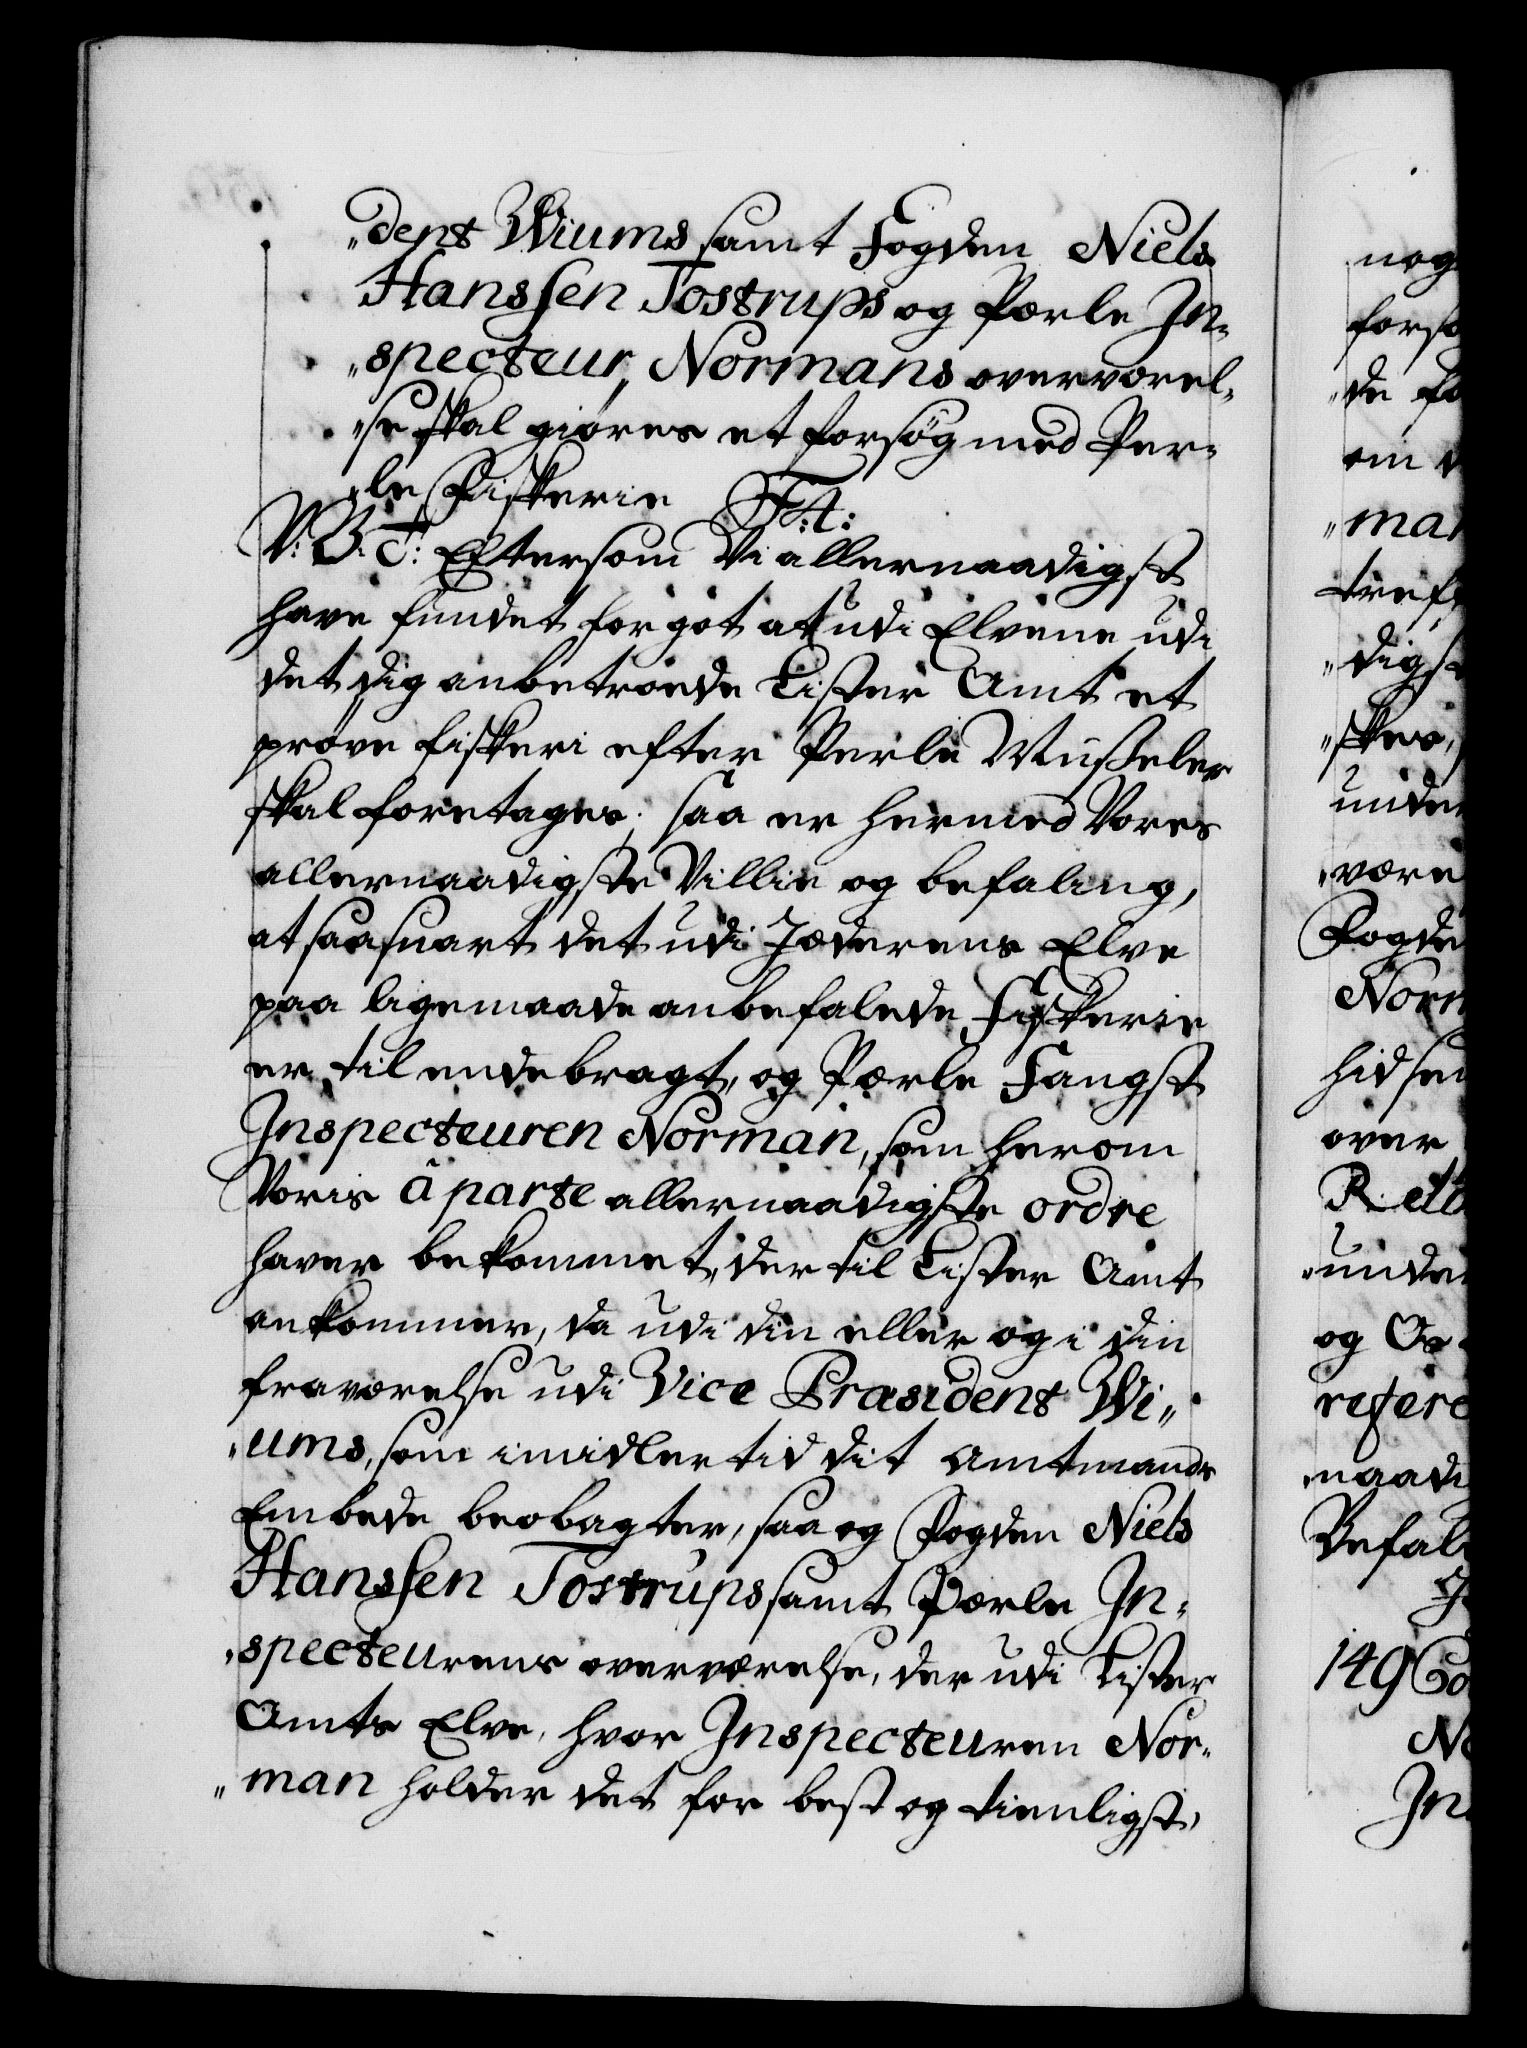 "dent Wiums samt Fogden Niels
Hanssen Tostrups og Perle In-
"specteur Normans overværel-
"se skal giøres et forsøg med Per-
"le Fiskerie F:4:
V: G: T: Eftersom Vi allernaadigst
have fundet for got at udi Elvene udi
det dig anbetroede Lister Amt et
prøve fiskeri efter Perle Musseler
skal foretages; saa er hermed Vores
allernaadigste Villie og befaling,
at saasnart det udi Jæderens Elve
paa ligemaade anbefalede Fiskerie
er til endebragt, og Perle Fangst
Inspecteuren Norman, som herom
Voris à parte allernaadigste ordre
haver bekommet, der til Lister Amt
ankommer, da udi din eller og i din
fraværelse udi Vice Præsident Wi"
"ums, som imidlertid dit Amtmands
Embede beobagter, saa og Fogden Niels
Hanssen Tostrups samt Perle In-
"specteurens overværelse, der udi Lister
Amts Elve, hvor Inspecteuren Nor-
"man holder det for best og tienligst,
nog
forsø
"de fo
om
"man
treff
"digst
"skes,
under
"være
Fogde
Norm
hidsen
over
R. ett
"under
og
refere
"naadi
Befal
149 Co
No
In